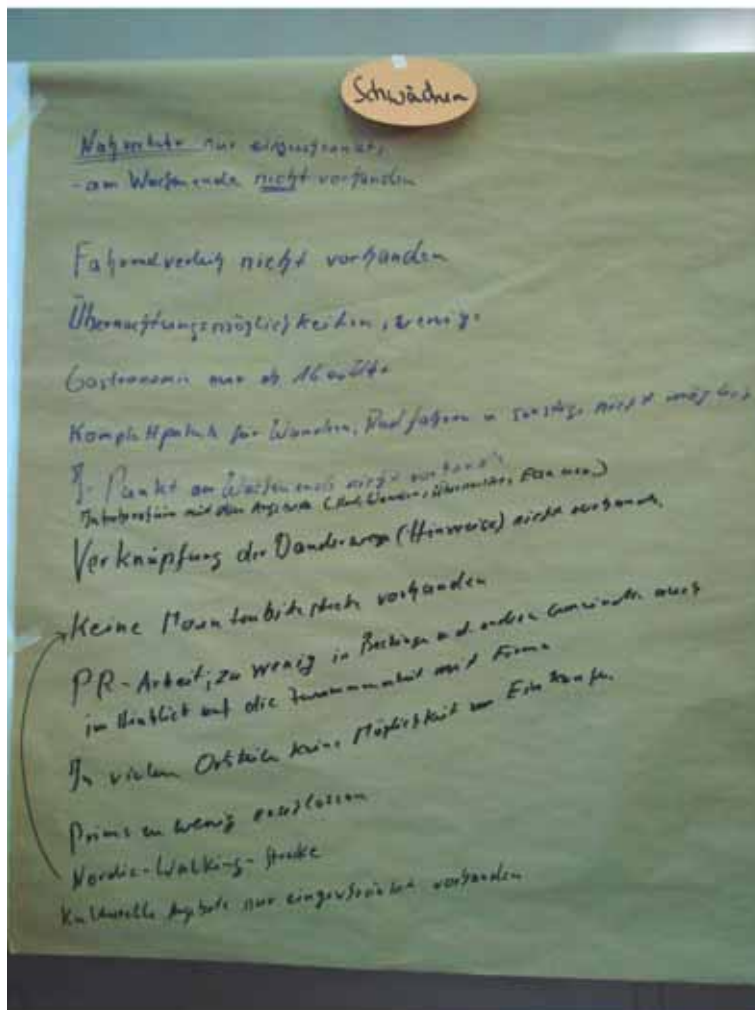 Schwächen
Nahverkehr nur eingeschränkt,
- am Wochenende nicht vorhanden
Fahrradverleih nicht vorhanden
Übernachtungsmöglichkeiten, wenige
Gastronomie nur ab 16 oo Uhr
Komplettpakete für Wandern, Radfahren u sonstige nicht möglich
I-Punkt am Wochenende nicht vorhanden
mit den Angebote (Rad, Wandern,
Verknüpfung der Wanderwege (Hinweise) nicht vorhanden
Keine Mountenbikestrecke vorhanden
PR-Arbeit; zu wenig in Beckingen u d. andern Gemeinden auch
im Hinblick auf die Zusammenarbeit mit Firmen
In vielen Ortsteilen keine Möglichkeit zum Einkaufen
Prims zu wenig
Nordic-Walking-Strecke
Kulturelle Angebote nur eingeschränkt vorhanden